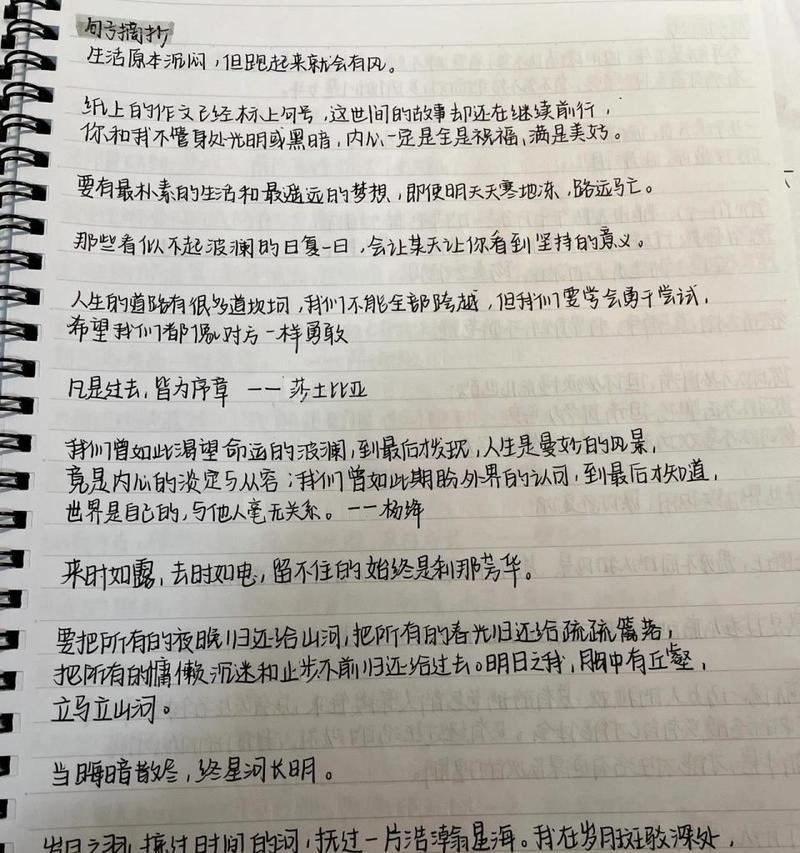 句子摘抄
生活原本沉闷，但跑起来就会有风。
纸上的作文已经标上句号，这世间的故事却还在继续前行，
你和我不管身处光明或黑暗，内心一定是全是祝福，满是美好。
要有最朴素的生活和最遥远的梦想，即使明天天寒地冻，路远马亡。
那些看似不起波澜的日复一日，会让某天让你看到坚持的意义。
人生的道路有很多道坎坷，我们不能全部跨越，但我们要学会勇于尝试，
希望我们都像对方一样勇敢
凡是过去，皆为序章 ——莎士比亚
我们曾如此渴望命运的波澜，到最后才发现，人生是曼妙的风景，
竟是内心的淡定与从容；我们曾如此期盼外界的认可，到最后才知道，
世界是自己的，与他人毫无关系。——杨绛
来时如露，去时如电，留不住的始终是刹那芳华。
要把所有的夜晚归还给山河，把所有的春光归还给疏疏篱落，
把所有的慵懒沉迷和止步不前归还给过去。明日之我，胸中有丘壑，
立马立山河。
当晦暗散尽，终星河长明。
岁月之羽，掠过时间的河，抚过一片浩瀚星海。我在岁月斑驳深处，